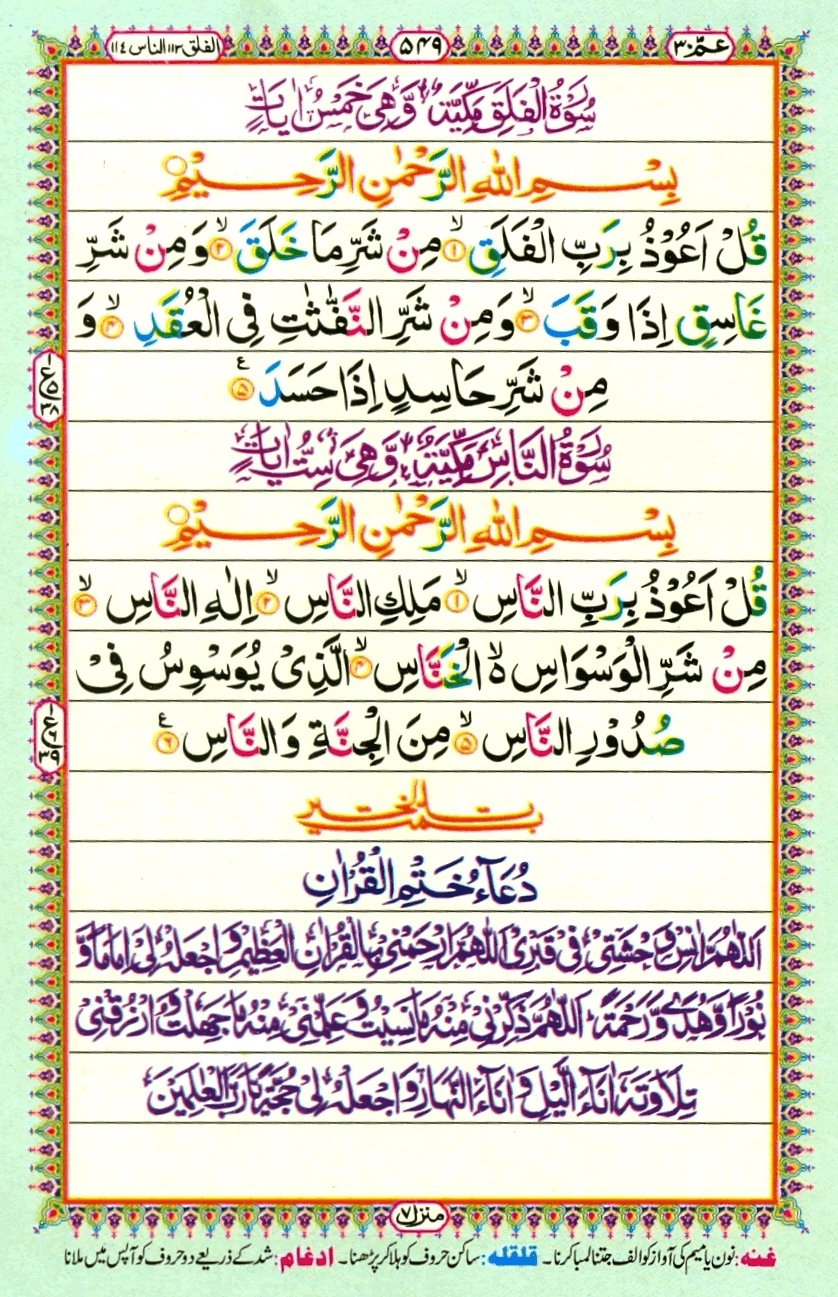 عمّ ٣٠
۵۴۹
الفلق ١١٣ الناس ١١٤
سُوْرَةُ الْفَلَقِ مَكِّيَّةٌ وَّهِيَ خَمْسُ اٰيَاتٍ
بِسْمِ اللهِ الرَّحْمٰنِ الرَّحِيْمِ
قُلْ اَعُوْذُ بِرَبِّ الْفَلَقِ ۙ‏﴿۱﴾ مِنْ شَرِّ مَا خَلَقَ ۙ‏﴿۲﴾ وَمِنْ شَرِّ
غَاسِقٍ اِذَا وَقَبَ ۙ‏﴿۳﴾ وَمِنْ شَرِّ النَّفّٰثٰتِ فِى الْعُقَدِ ۙ‏﴿۴﴾ وَ
مِنْ شَرِّ حَاسِدٍ اِذَا حَسَدَ ﴿۵﴾
ع ۵ ۳۸
سُوْرَةُ النَّاسِ مَكِّيَّةٌ وَّهِيَ سِتُّ اٰيَاتٍ
بِسْمِ اللهِ الرَّحْمٰنِ الرَّحِيْمِ
قُلْ اَعُوْذُ بِرَبِّ النَّاسِ ۙ‏﴿۱﴾ مَلِكِ النَّاسِ ۙ‏﴿۲﴾ اِلٰهِ النَّاسِ ۙ‏﴿۳﴾
مِنْ شَرِّ الْوَسْوَاسِ ۙ الْخَنَّاسِ ۙ‏﴿۴﴾ الَّذِىْ يُوَسْوِسُ فِىْ
صُدُوْرِ النَّاسِ ۙ‏﴿۵﴾ مِنَ الْجِنَّةِ وَالنَّاسِ ﴿۶﴾
ع ۶ ۳۹
دُعَآءُ خَتْمِ الْقُرْاٰنِ
اَللّٰهُمَّ اٰنِسْ وَحْشَتِىْ فِىْ قَبْرِىْ اَللّٰهُمَّ ارْحَمْنِىْ بِالْقُرْاٰنِ الْعَظِيْمِ وَاجْعَلْهُ لِىْ اِمَامًا وَّ
نُوْرًا وَّهُدًى وَّرَحْمَةً ؕ اَللّٰهُمَّ ذَكِّرْنِىْ مِنْهُ مَا نَسِيْتُ وَعَلِّمْنِىْ مِنْهُ مَا جَهِلْتُ وَارْزُقْنِىْ
تِلَاوَتَهٗ اٰنَآءَ الَّيْلِ وَاٰنَآءَ النَّهَارِ وَاجْعَلْهُ لِىْ حُجَّةً يَّا رَبَّ الْعٰلَمِيْنَ
منزل ۷
غنه: نون یا میم کی آواز کو الف جتنا لمبا کرنا۔ قلقله: ساکن حروف کو ہلا کر پڑھنا۔ ادغام: شد کے ذریعے دو حروف کو آپس میں ملانا